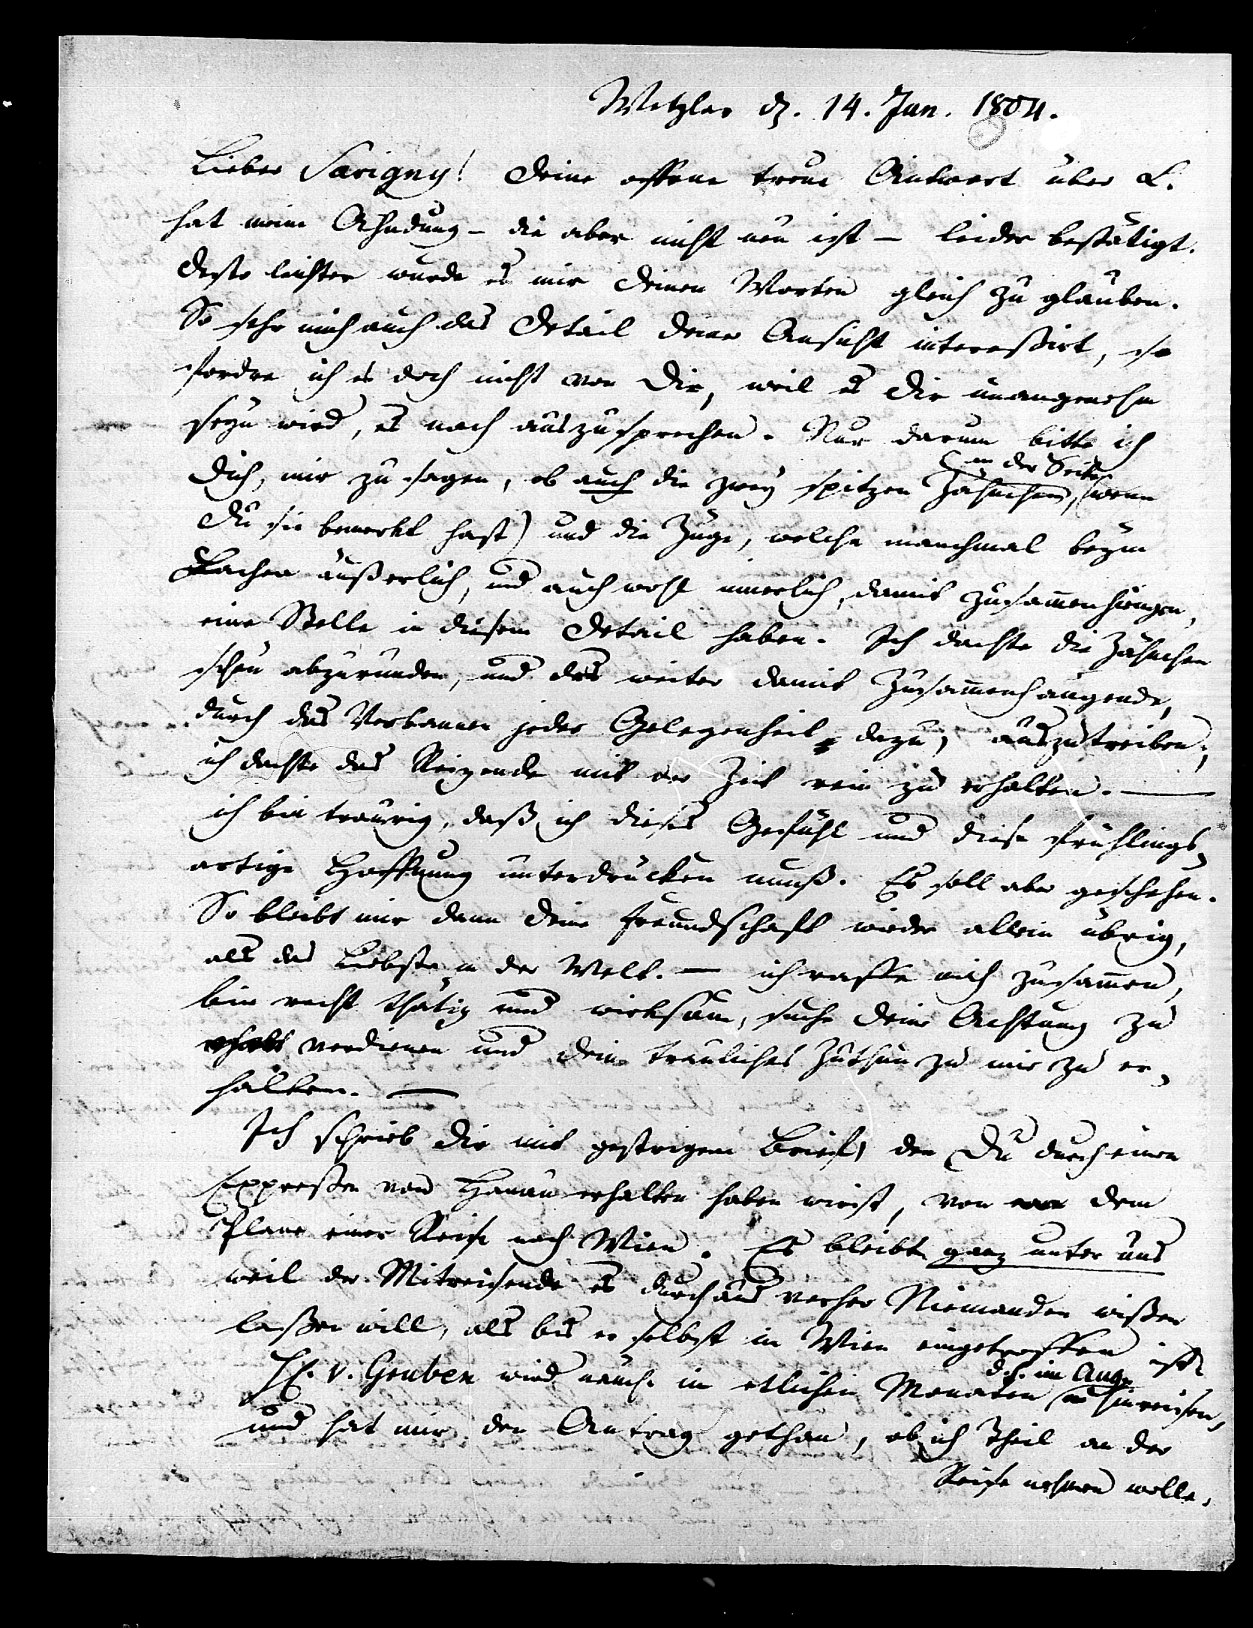 Wetzlar d. 14. Jan. 1804.
Lieber Savigny! Deine offene treue Antwort über L.
hat meine Ahndung – die aber nicht neu ist – leider bestätigt.
Desto leichter wurde es mir Deinen Worten gleich zu glauben.
So sehr mich auch das Detail Deiner Ansicht interessirt, so
fordre ich es doch nicht von Dir, weil es Dir unangenehm
seyn wird, es noch auszusprechen. Nur darum bitte ich
Dich, mir zu sagen, ob auch die zwey spitzen Zähnchen, (wenn
an der Seite
Du sie bemerkt hast) und die Züge, welche manchmal beym
Lachen äußerlich, und auch wohl innerlich, damit zusammenhängen,
eine Stelle in diesem Detail haben. Ich dachte die Zähnchen
schön abzurunden, und das weiter damit Zusammenhängende,
durch das Verbannen jeder Gelegenheit dazu, auszutreiben;
ich dachte das Reizende mit der Zeit rein zu erhalten. —
ich bin traurig, daß ich dieses Gefühl und diese frühlings-
artige Hoffnung unterdrücken muß. Es soll aber geschehen.
So bleibt mir dann Deine Freundschaft wieder allein übrig,
als das Liebste in der Welt. — ich raffe mich zusammen,
bin recht thätig und wirksam, suche Deine Achtung zu
verdienen und Dein trauliches Zuthun zu mir zu er-
halten. —
Ich schrieb Dir mit gestrigem Brief, den Du durch einen
Expreßen von Hanau erhalten haben wirst, von dem
Plane einer Reise nach Wien. Es bleibt ganz unter uns
weil der Mitreisende es durchaus vorher Niemanden wißen
laßen will, als bis er selbst in Wien eingetroffen ist.
H. v. Gruben wird näml. in etlichen Monaten hinreisen,
d.h. im Aug.
und hat mir den Antrag gethan, ob ich Theil an der
Reise nehmen wolle.